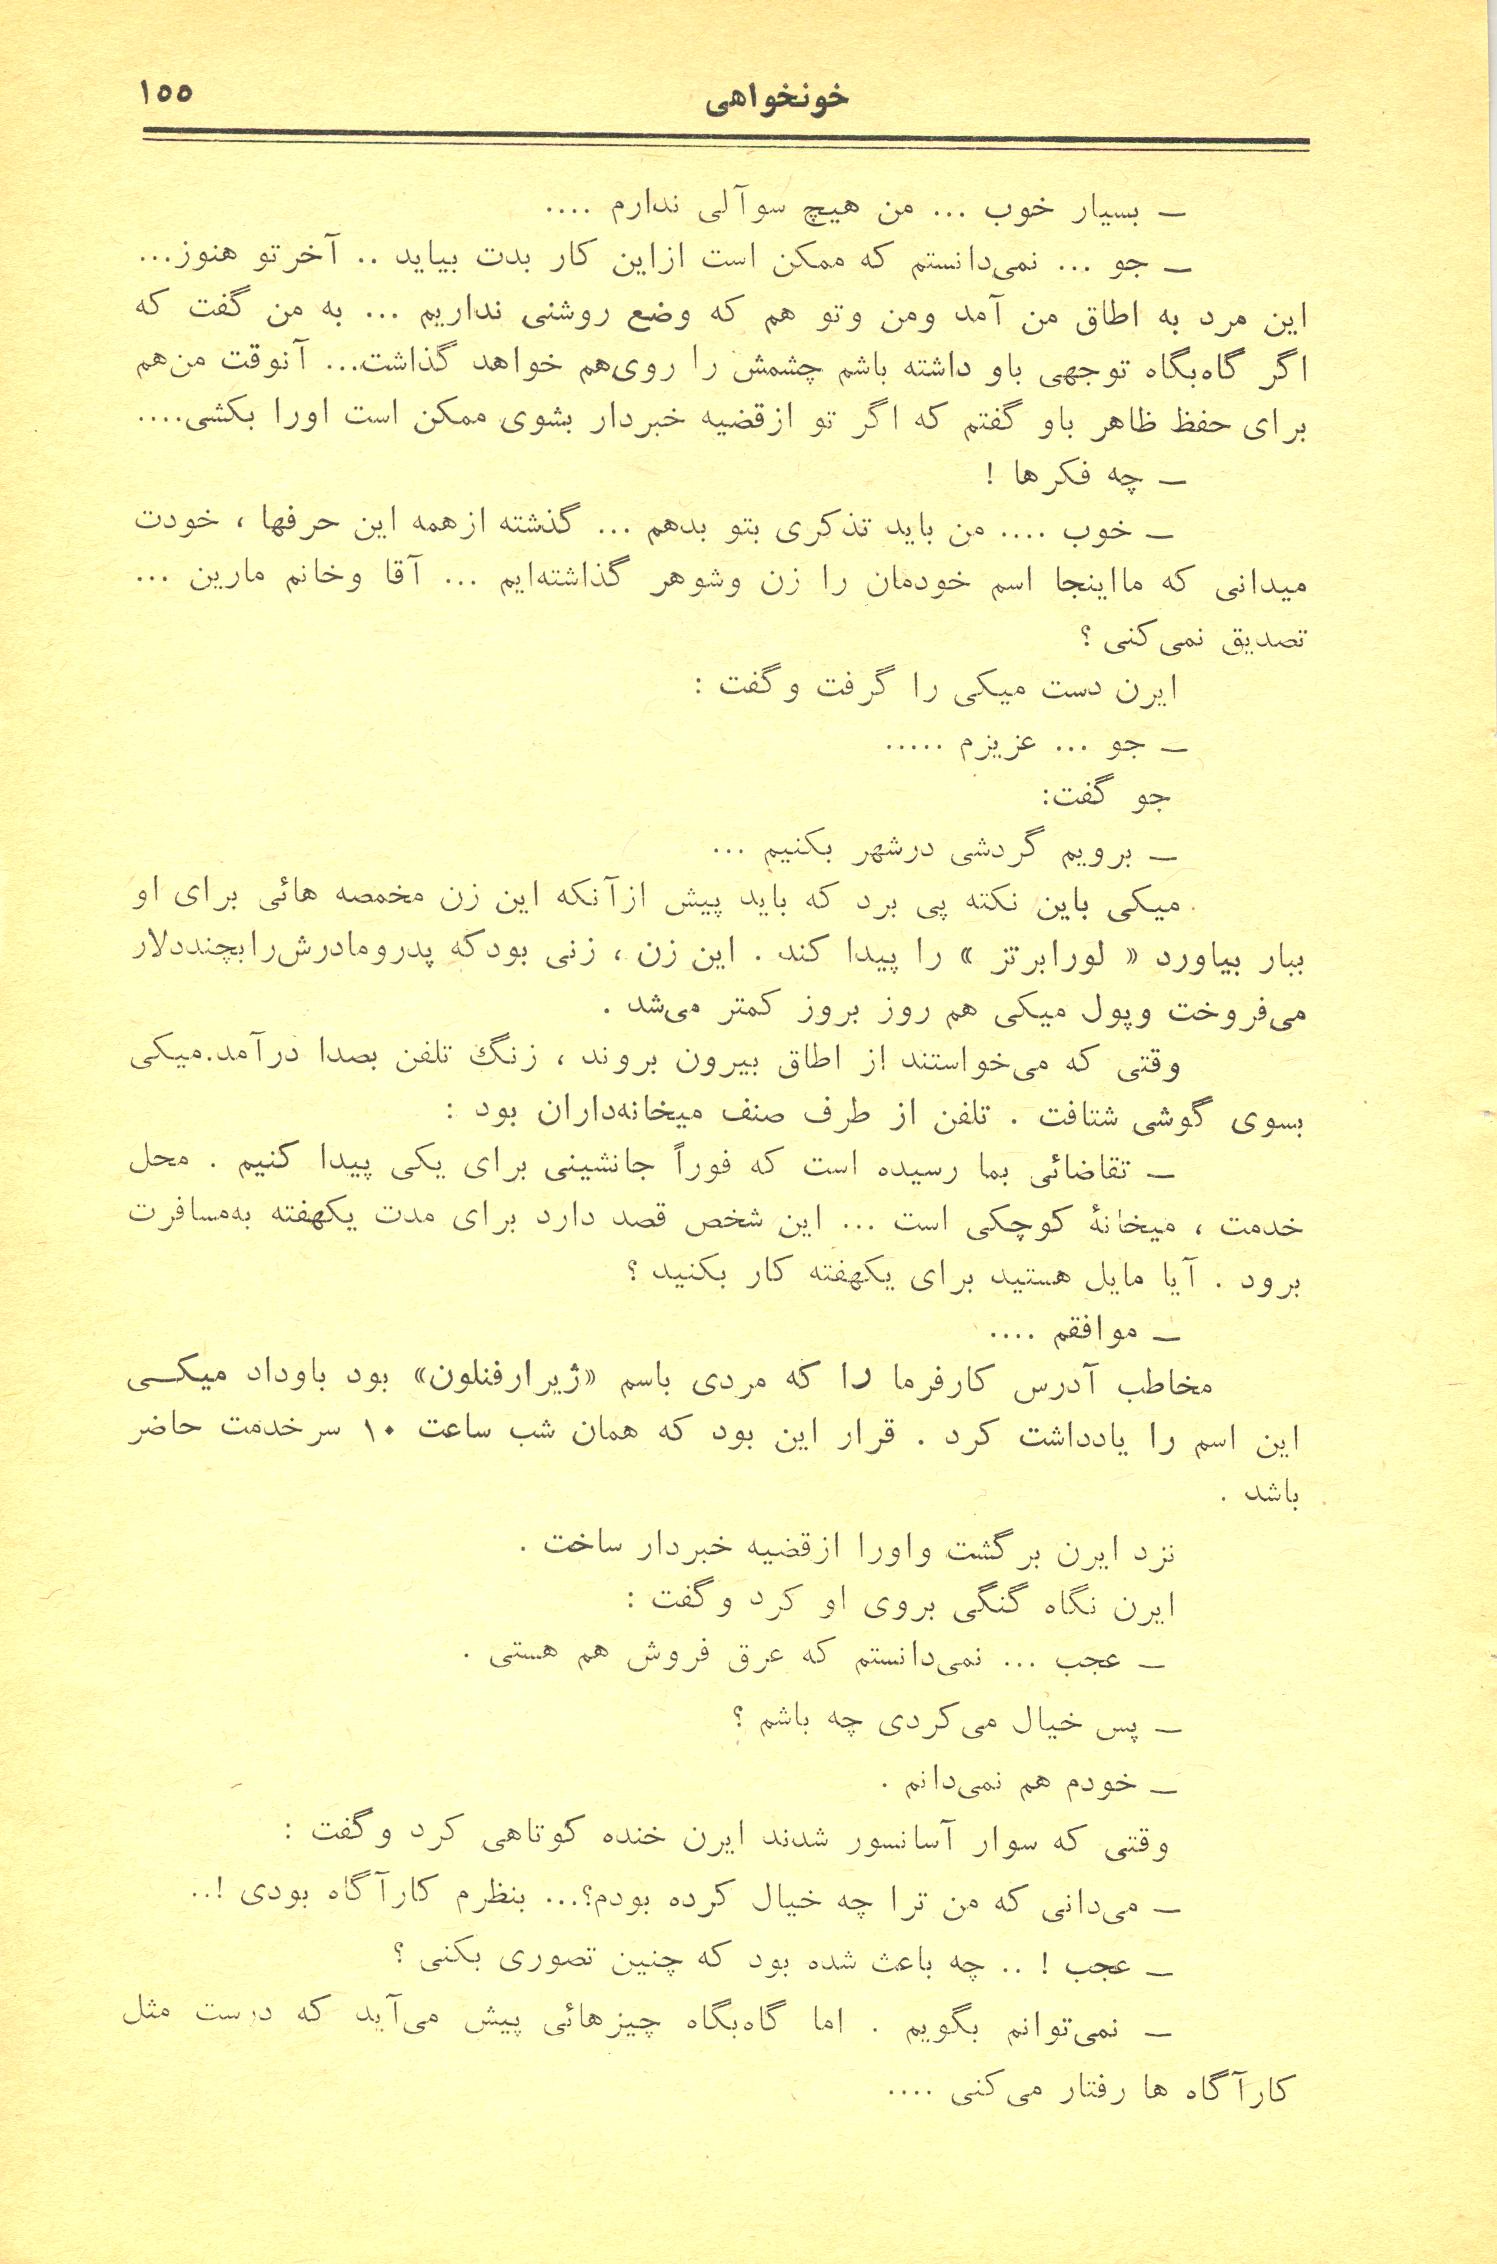 خونخواهی
۱۵۵
ــ بسیار خوب ... من هیچ سوآلی ندارم ....
ــ جو ... نمی‌دانستم که ممکن است ازاین کار بدت بیاید .. آخرتو هنوز...
این مرد به اطاق من آمد ومن وتو هم که وضع روشنی نداریم ... به من گفت که
اگر گاه‌بگاه توجهی باو داشته باشم چشمش را روی‌هم خواهد گذاشت... آنوقت من‌هم
برای حفظ ظاهر باو گفتم که اگر تو ازقضیه خبردار بشوی ممکن است اورا بکشی....
ــ چه فکرها !
ــ خوب .... من باید تذکری بتو بدهم ... گذشته ازهمه این حرفها ، خودت
میدانی که مااینجا اسم خودمان را زن وشوهر گذاشته‌ایم ... آقا وخانم مارین ...
تصدیق نمی‌کنی ؟
ایرن دست میکی را گرفت وگفت :
ــ جو ... عزیزم .....
جو گفت:
ــ برویم گردشی درشهر بکنیم ...
میکی باین نکته پی برد که باید پیش ازآنکه این زن مخمصه هائی برای او
ببار بیاورد « لورابرتز » را پیدا کند . این زن ، زنی بودکه پدرومادرش‌رابچنددلار
می‌فروخت وپول میکی هم روز بروز کمتر می‌شد .
وقتی که می‌خواستند از اطاق بیرون بروند ، زنگ تلفن بصدا درآمد.میکی
بسوی گوشی شتافت . تلفن از طرف صنف میخانه‌داران بود :
ــ تقاضائی بما رسیده است که فوراً جانشینی برای یکی پیدا کنیم . محل
خدمت ، میخانهٔ کوچکی است ... این شخص قصد دارد برای مدت یکهفته به‌مسافرت
برود . آیا مایل هستید برای یکهفته کار بکنید ؟
ــ موافقم ....
مخاطب آدرس کارفرما را که مردی باسم «ژیرارفنلون» بود باوداد میکـی
این اسم را یادداشت کرد . قرار این بود که همان شب ساعت ۱۰ سرخدمت حاضر
باشد .
نزد ایرن برگشت واورا ازقضیه خبردار ساخت .
ایرن نگاه گنگی بروی او کرد وگفت :
ــ عجب ... نمی‌دانستم که عرق فروش هم هستی .
ــ پس خیال می‌کردی چه باشم ؟
ــ خودم هم نمی‌دانم .
وقتی که سوار آسانسور شدند ایرن خنده کوتاهی کرد وگفت :
ــ می‌دانی که من ترا چه خیال کرده بودم؟... بنظرم کارآگاه بودی !..
ــ عجب ! .. چه باعث شده بود که چنین تصوری بکنی ؟
ــ نمی‌توانم بگویم . اما گاه‌بگاه چیزهائی پیش می‌آید که درست مثل
کارآگاه ها رفتار می‌کنی ....